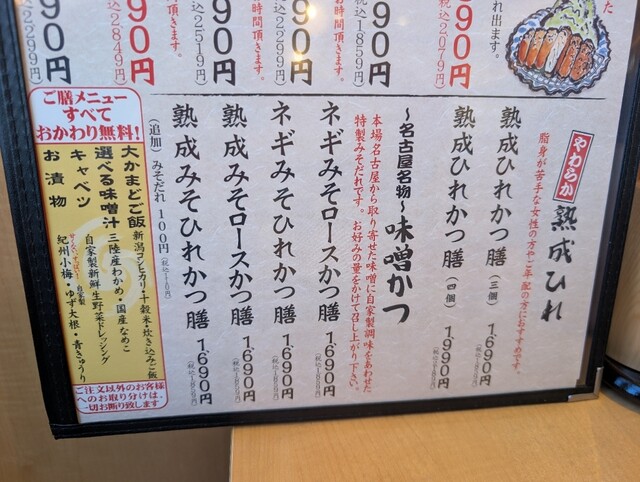 れ出ます。
90円
税込2079円)
90円
税込1859円)
お時間頂きます。
90円
込2299円)
90円
込2519円)
頂きます。
90円
2849円)
90円
2299円)
やわらか
熟成ひれ
脂身が苦手な女性の方やご年配の方におすすめです。
熟成ひれかつ膳(三個) 1,690円
熟成ひれかつ膳(四個) 1,990円
～名古屋名物～味噌かつ
本場名古屋から取り寄せた味噌に自家製調味をあわせた
特製みそだれです。お好みの量をかけて召し上がり下さい。
ネギみそロースかつ膳 1,690円
ネギみそひれかつ膳 1,690円
熟成みそロースかつ膳 1,690円
熟成みそひれかつ膳 1,690円
(追加)みそだれ 100円(税込110円)
ご膳メニュー
すべて
おかわり無料!
大かまどご飯 新潟コシヒカリ・十穀米・炊き込みご飯
選べる味噌汁 三陸産わかめ・国産なめこ
キャベツ 自家製新鮮生野菜ドレッシング
お漬物 紀州小梅・ゆず大根・青きゅうり
ご注文以外のお客様
へのお取り分けは、
一切お断り致します